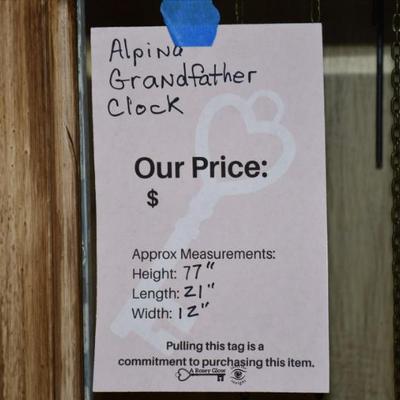 Alpina
Grandfather
Clock
Our Price:
$
Approx Measurements:
Height: 77"
Length: 21"
Width: 12"
Pulling this tag is a
commitment to purchasing this item.
A Rosey Glow